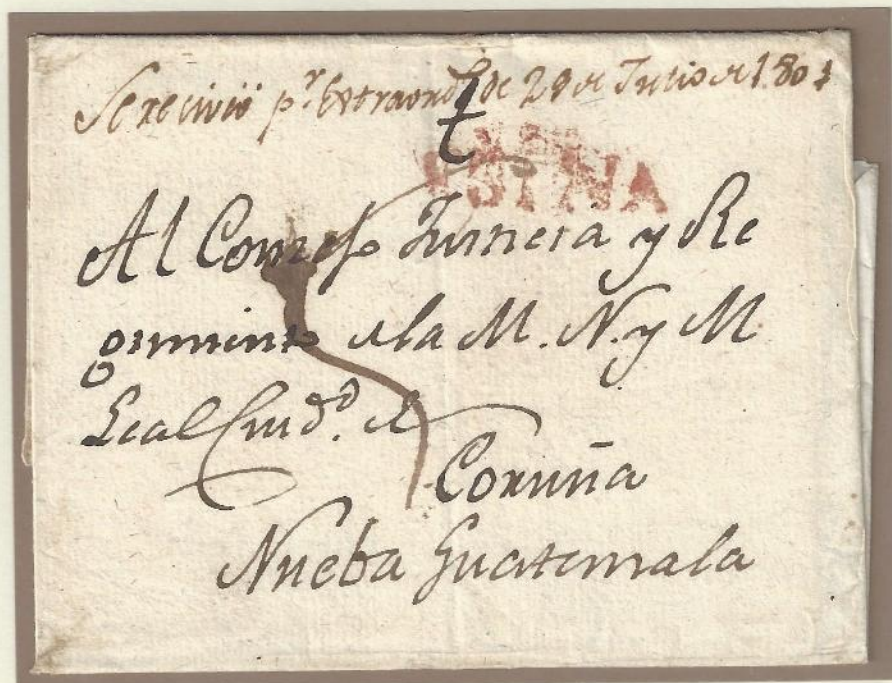 Se recivió pr. Extraordo. de 28 de Julio de
Al Consejo Justicia y Re
gimiento de la M. N. y M
Leal Ciudd. de
Coruña
Nueba Guatemala